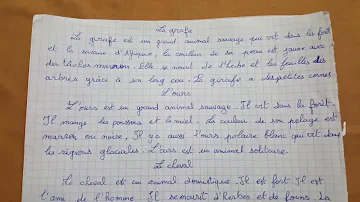 La girafe
La girafe est un grand animal sauvage qui vit dans la forêt
et la savane d'Afrique, la couleur de son peau est jaune avec
des tâches marron. Elle se nourrit de l'herbe et les feuilles des
arbres grâce à son long cou. La girafe a des petites cornes.
L'ours
L'ours est un grand animal sauvage. Il vit dans la forêt.
Il mange les poissons et le miel. La couleur de son pelage est
marron ou noire. Il y a aussi l'ours polaire blanc qui vit dans
les régions glaciales. L'ours est un animal solitaire.
Le cheval
Le cheval est un animal domestique. Il est fort Il est
l'ami de l'homme. Il se nourrit d'herbes et de foins. La